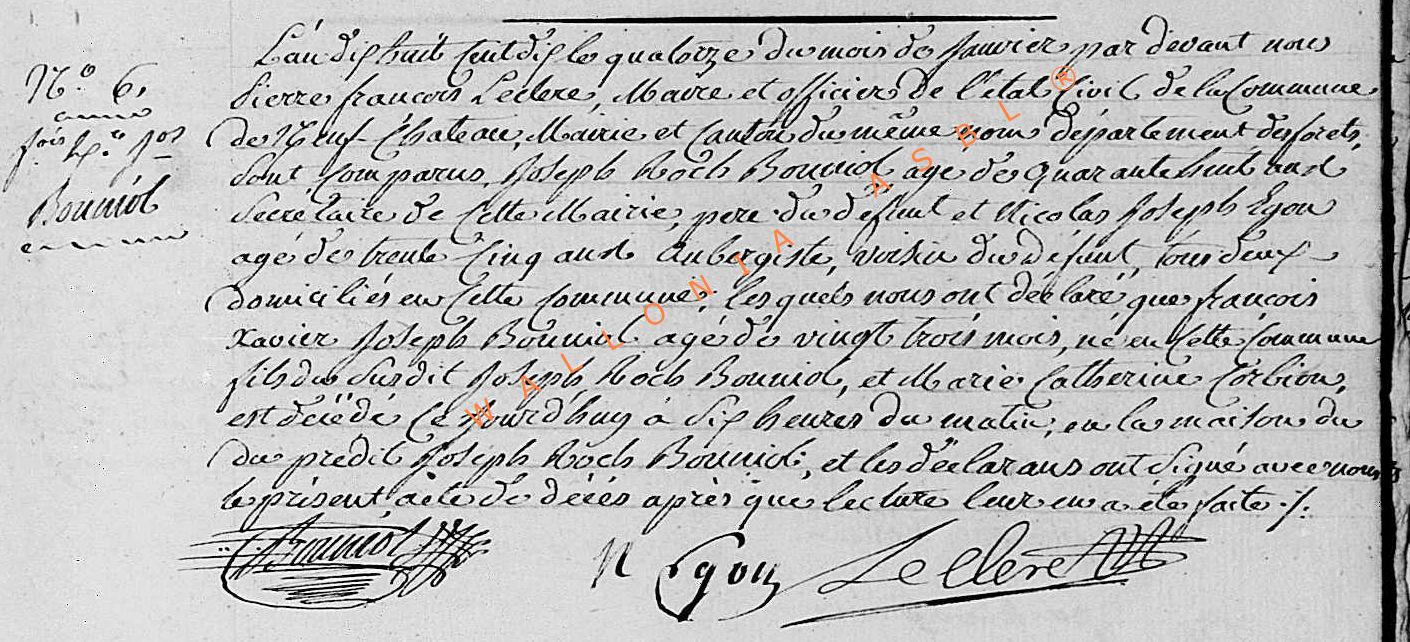 N.° 6,
fois X.er Jos
Bouniol
L'an dix huit cent dix le quatorze du mois de Janvier par devant nous
Pierre françois Leclere, Maire et officier de l'état Civil de la Commune
de Neuf-Chateau, Mairie et Canton du même nom département des forets,
Sont Comparus, Joseph Roch Bouniol agé de quarante huit ans
Secretaire de Cette Mairie, pere du défunt et Nicolas Joseph Egon
agé de trente Cinq ans Aubergiste, voisin du défunt, tous deux
domiciliés en Cette Commune, lesquels nous ont déclaré que françois
Xavier Joseph Bouniol agé de vingt trois mois, né en Cette Commune
fils du Susdit Joseph Roch Bouniol, et Marie Catherine Corbion,
est décédé Ce Jourd'huy à Six heures du matin, en la maison du
du prédit Joseph Roch Bouniol, et les déclarans ont Signé avec nous
le présent acte de décés après que lecture leur en a été faite ./.
Bouniol N Egon Leclere
WALLONIA ASBL ®